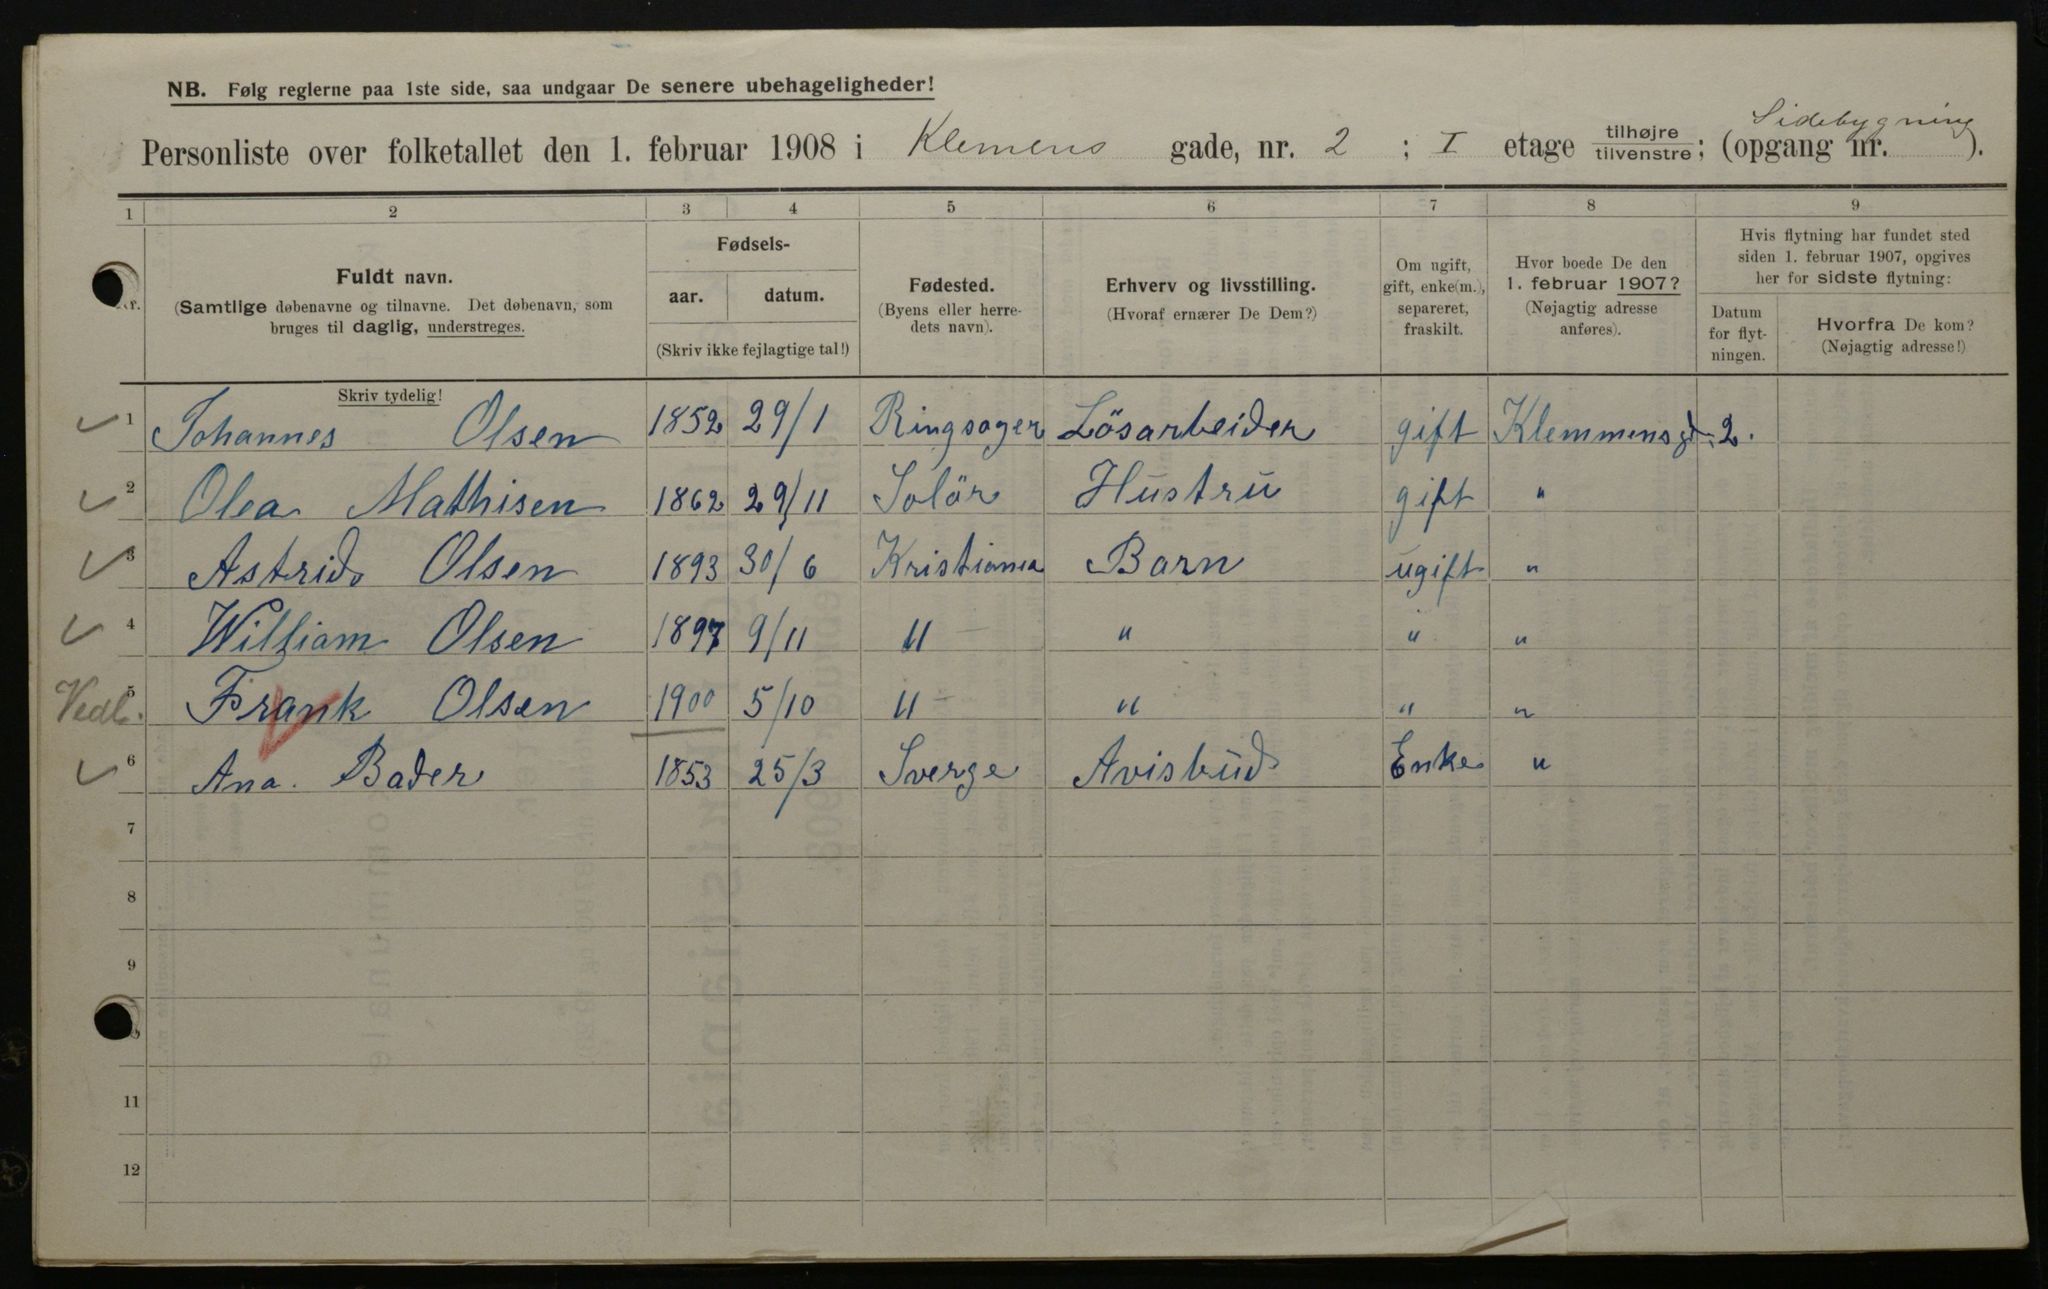 NB. Følg reglerne paa 1ste side, saa undgaar De senere ubehageligheder!
Sidebygning
Personliste over folketallet den 1. februar 1908 i Klemens gade, nr. 2 ; I etage tilhøjre tilvenstre; (opgang nr. ).
1 2 3 4 5 6 7 8 9
Nr.
Fuldt navn.
(Samtlige døbenavne og tilnavne. Det døbenavn, som
bruges til daglig, understreges.
Skriv tydelig!
Fødsels-
aar. datum.
(Skriv ikke fejlagtige tal!)
Fødested.
(Byens eller herre-
dets navn).
Erhverv og livsstilling.
(Hvoraf ernærer De Dem?)
Om ugift,
gift, enke(m.),
separeret,
fraskilt.
Hvor boede De den
1. februar 1907?
(Nøjagtig adresse
anføres).
Hvis flytning har fundet sted
siden 1. februar 1907, opgives
her for sidste flytning:
Datum
for flyt-
ningen.
Hvorfra De kom?
(Nøjagtig adresse!)
1 Johannes Olsen 1852 29/1 Ringsager Lösarbeider gift Klemmensgd. 2.
2 Olea Mathisen 1862 29/11 Solör Hustru gift "
3 Astrid Olsen 1893 30/6 Kristiania Barn ugift "
4 William Olsen 1897 9/11 " — " " "
Vedl. 5 Frank Olsen 1900 5/10 " — " " "
6 Ana. Bader 1853 25/3 Sverge Avisbud Enke "
7
8
9
11
12